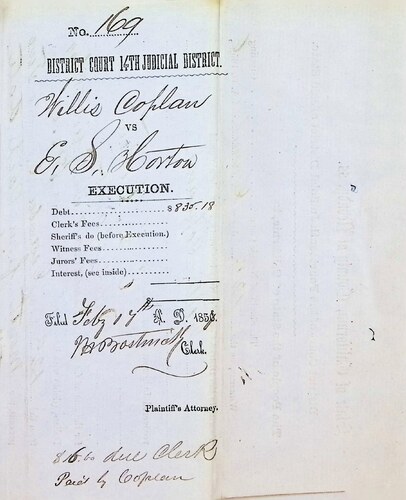 No. 169
DISTRICT COURT 14TH JUDICIAL DISTRICT.
Willis Coplan
VS
E, S, Horton
EXECUTION.
Debt $835.18
Clerk's Fees
Sheriff's do (before Execution.)
Witness Fees
Jurors' Fees
Interest, (see inside)
Filed Feby 17th A. D. 185
Clerk.
Plaintiff's Attorney.
due Clerk
Paid by Coplan